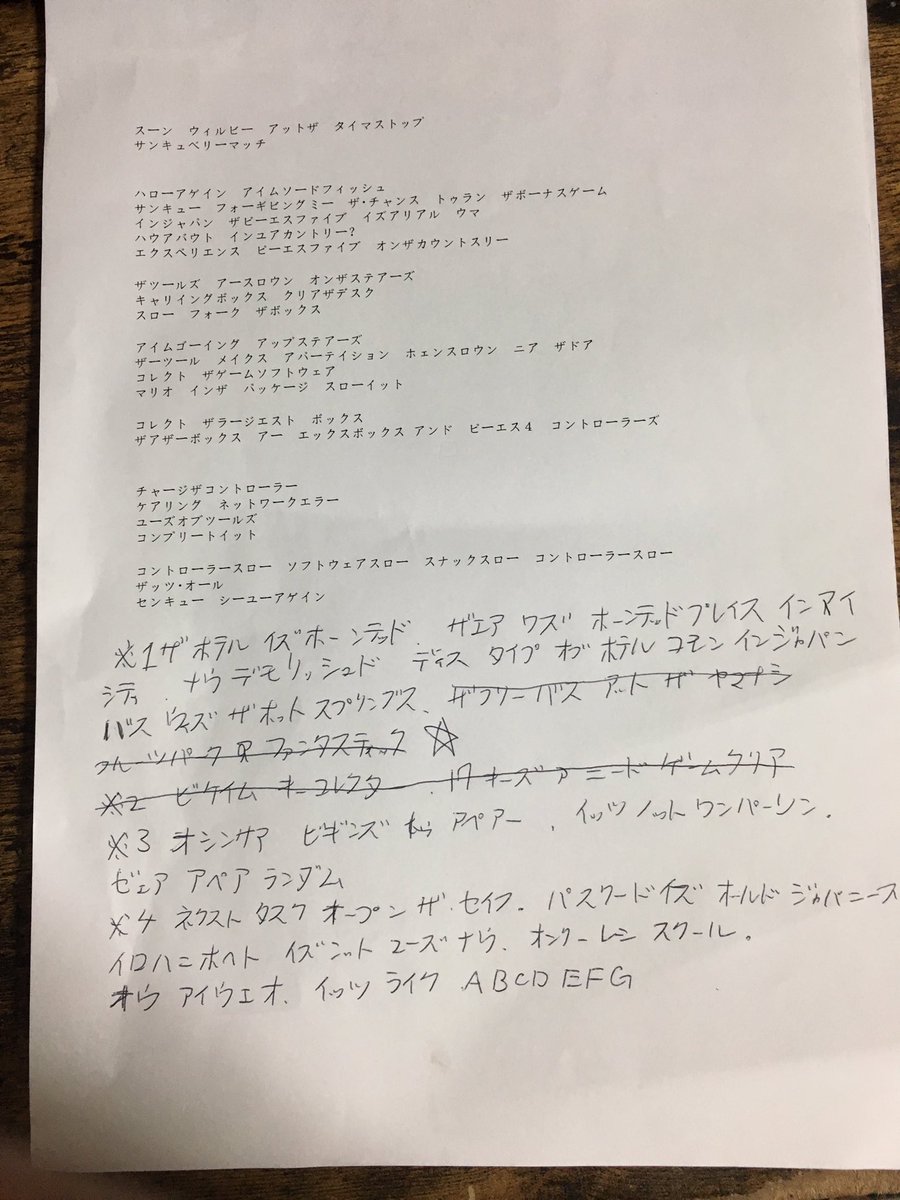 スーン　ウィルビー　アットザ　タイマストップ
サンキュベリーマッチ
ハローアゲイン　アイムソードフィッシュ
サンキュー　フォーギビングミー　ザ・チャンス　トゥラン　ザボーナスゲーム
インジャパン　ザピーエスファイブ　イズアリアル　ウマ
ハウアバウト　インユアカントリー?
エクスペリエンス　ピーエスファイブ　オンザカウントスリー
ザツールズ　アースロウン　オンザステアーズ
キャリイングボックス　クリアザデスク
スロー　フォーク　ザボックス
アイムゴーイング　アップステアーズ
ザーツール　メイクス　アパーテイション　ホェンスロウン　ニア　ザドア
コレクト　ザゲームソフトウェア
マリオ　インザ　パッケージ　スローイット
コレクト　ザラージエスト　ボックス
ザアザーボックス　アー　エックスボックス アンド　ピーエス４　コントローラーズ
チャージザコントローラー
ケアリング　ネットワークエラー
ユーズオブツールズ
コンプリートイット
コントローラースロー　ソフトウェアスロー　スナックスロー　コントローラースロー
ザッツ・オール
センキュー　シーユーアゲイン
※1 ザ ホテル イズ ホーンテッド. ザエア ワズ ホーンテッドプレイス インマイ
シティ. ナウ デモリッシュド ディス タイプ オブ ホテル コモン インジャパン
バス ウィズ ザ ホット スプリングス、ザ フリー バス アット ザ ヤマナシ
フルーツパーク ファンタスティック ☆
※2 ビケイム キーコレクター. 17 キーズ ア ニード ゲームクリア
※3 オシンサア ビギンズ アペアー、イッツ ノット ワンパーソン.
ゼェア アペア ランダム
※4 ネクスト タスク オープン ザ セイフ. パスワードイズ オールド ジャパニース
イロハニホヘト イズ ノット ユーズ ナウ. オンリー スクール.
ナウ アイウエオ. イッツ ライク ABCDEFG